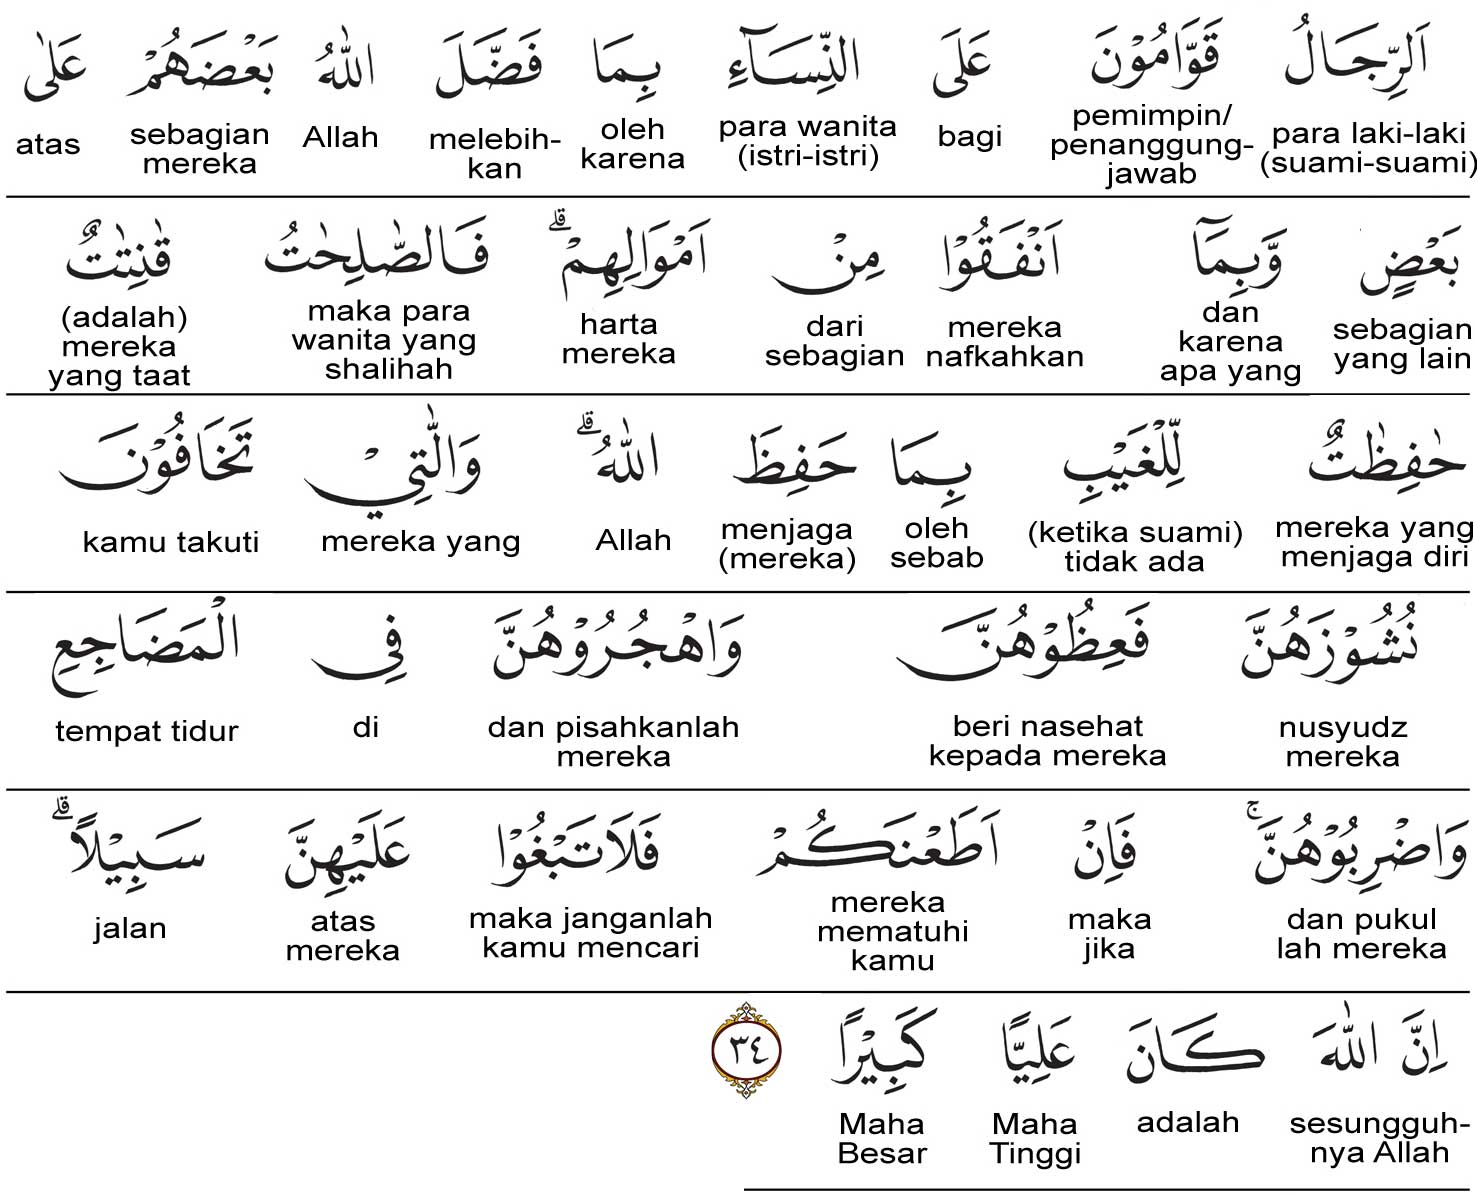 اَلرِّجَالُ قَوَّامُوْنَ عَلَى النِّسَاۤءِ بِمَا فَضَّلَ اللّٰهُ بَعْضَهُمْ عَلٰى
para laki-laki (suami-suami) pemimpin/ penanggung-jawab bagi para wanita (istri-istri) oleh karena melebih-kan Allah sebagian mereka atas
بَعْضٍ وَّبِمَآ اَنْفَقُوْا مِنْ اَمْوَالِهِمْ ۗ فَالصّٰلِحٰتُ قٰنِتٰتٌ
sebagian yang lain dan karena apa yang mereka nafkahkan dari sebagian harta mereka maka para wanita yang shalihah (adalah) mereka yang taat
حٰفِظٰتٌ لِّلْغَيْبِ بِمَا حَفِظَ اللّٰهُ ۗ وَالّٰتِيْ تَخَافُوْنَ
mereka yang menjaga diri (ketika suami) tidak ada oleh sebab menjaga (mereka) Allah mereka yang kamu takuti
نُشُوْزَهُنَّ فَعِظُوْهُنَّ وَاهْجُرُوْهُنَّ فِى الْمَضَاجِعِ
nusyudz mereka beri nasehat kepada mereka dan pisahkanlah mereka di tempat tidur
وَاضْرِبُوْهُنَّ ۚ فَاِنْ اَطَعْنَكُمْ فَلَا تَبْغُوْا عَلَيْهِنَّ سَبِيْلًا ۗ
dan pukul lah mereka maka jika mereka mematuhi kamu maka janganlah kamu mencari atas mereka jalan
اِنَّ اللّٰهَ كَانَ عَلِيًّا كَبِيْرًا ٣٤
sesungguh-nya Allah adalah Maha Tinggi Maha Besar